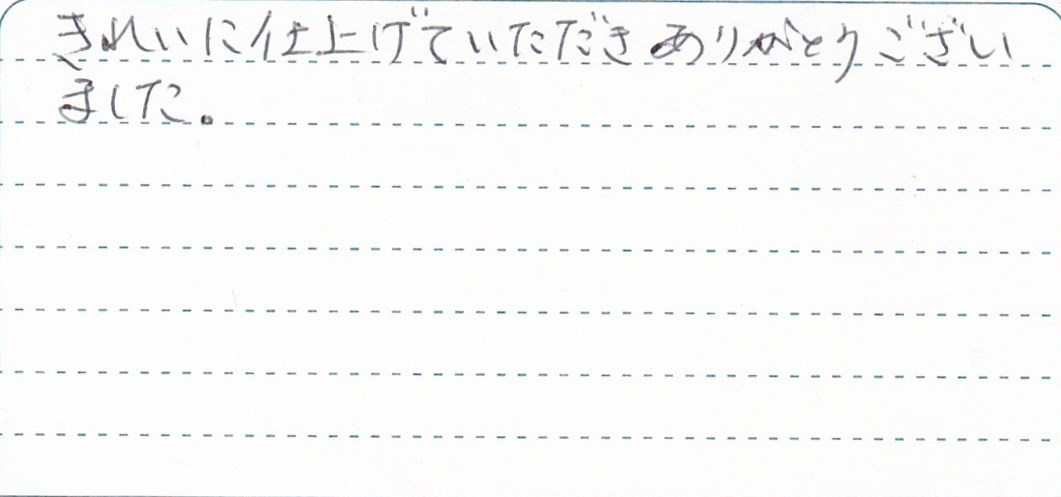 きれいに仕上げていただきありがとうござい
ました。